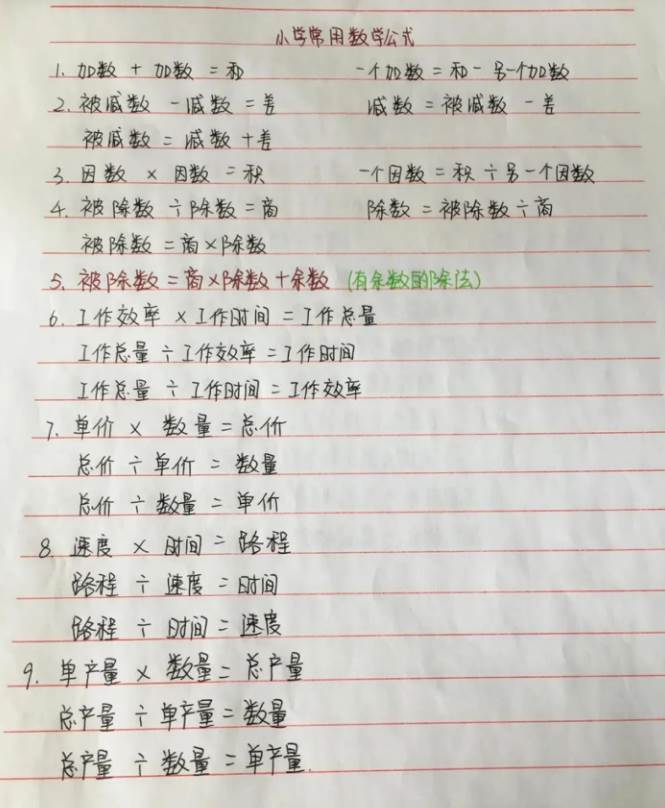 小学常用数学公式
1. 加数 + 加数 = 和 一个加数 = 和 - 另一个加数
2. 被减数 - 减数 = 差 减数 = 被减数 - 差
被减数 = 减数 + 差
3. 因数 × 因数 = 积 一个因数 = 积 ÷ 另一个因数
4. 被除数 ÷ 除数 = 商 除数 = 被除数 ÷ 商
被除数 = 商 × 除数
5. 被除数 = 商 × 除数 + 余数 (有余数的除法)
6. 工作效率 × 工作时间 = 工作总量
工作总量 ÷ 工作效率 = 工作时间
工作总量 ÷ 工作时间 = 工作效率
7. 单价 × 数量 = 总价
总价 ÷ 单价 = 数量
总价 ÷ 数量 = 单价
8. 速度 × 时间 = 路程
路程 ÷ 速度 = 时间
路程 ÷ 时间 = 速度
9. 单产量 × 数量 = 总产量
总产量 ÷ 单产量 = 数量
总产量 ÷ 数量 = 单产量.